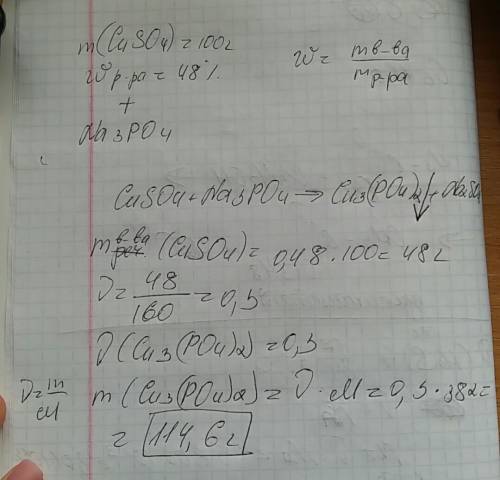 m(CuSO4)=100г
W р-ра = 48%
+
Na3PO4
W = m в-ва / m р-ра
CuSO4+Na3PO4→Cu3(PO4)2↓+Na2SO4
m в-ва (CuSO4)= 0,48·100=48г
ν=48/160=0,3
ν(Cu3(PO4)2)=0,3
ν=m/M
m(Cu3(PO4)2)=ν·M=0,3·382=
=114,6г